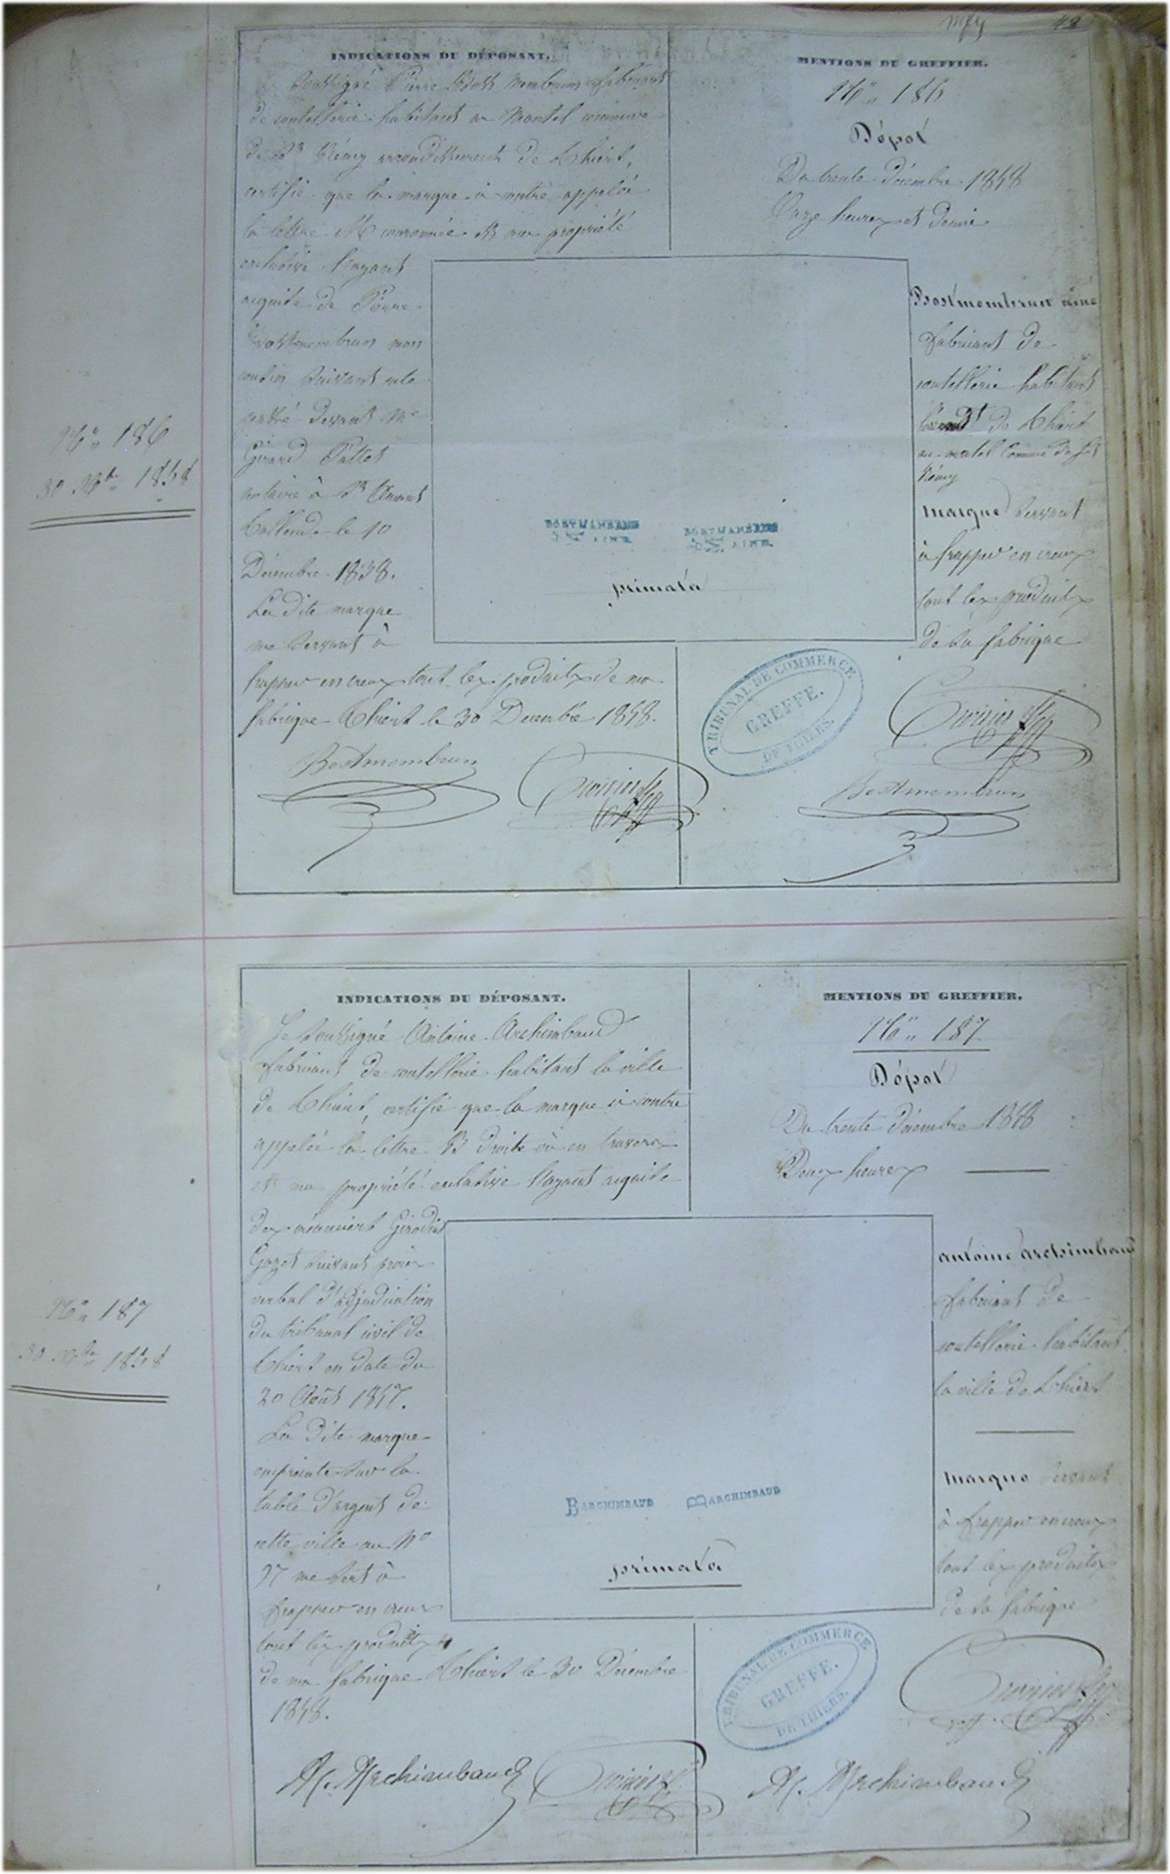 48
INDICATIONS DU DÉPOSANT.
soussigné Pierre Bost membrun fabricant
de coutellerie habitant au Montel commune
de St Rémy arrondissement de Thiers,
certifie que la marque ci contre appelée
la lettre M couronnée est ma propriété
exclusive l'ayant
acquise de Pierre
Bostmembrun mon
cousin suivant acte
devant Me
Girard Pattot
notaire à
le 10
Décembre 1838.
La dite marque
me servant à
frapper en creux tout les produits de ma
fabrique Thiers le 30 Decembre 1858.
Bostmembrun
MENTIONS DU GREFFIER.
No 186
Dépot
Du trente décembre 1858
Onze heures et demie
Bostmembrun ainé
fabricant de
coutellerie habitant
de Thiers
au montel Comune de St
Rémy
marque servant
à frapper en creux
tout les produits
de sa fabrique
BOSTMAMBRUN
M AINE
BOSTMAMBRUN
M AINE
primata
TRIBUNAL DE COMMERCE
GREFFE.
DE THIERS.
Bostmembrun
No 186
30 Xbre 1858
INDICATIONS DU DÉPOSANT.
Je soussigné Antoine Archimbaud
fabricant de coutellerie habitant la ville
de Thiers, certifie que la marque ci contre
appelée la lettre B droite où en travers
est ma propriété exclusive l'ayant acquise
des
Gozot suivant procès
verbal d'adjudication
du tribunal civil de
Thiers en date du
20 Août 1857.
La dite marque
empreinte sur la
table d'argent de
cette ville au No
97 me sert à
frapper en creux
tout les produits
de ma fabrique Thiers le 30 Décembre
1858.
A. Archimbaud
MENTIONS DU GREFFIER.
No 187
Dépot
Du trente décembre 1858
Deux heures
antoine archimbaud
fabricant de
coutellerie habitant
la ville de Thiers
marque servant
à frapper en creux
tout les produits
de sa fabrique
B ARCHIMBAUD
B ARCHIMBAUD
primata
TRIBUNAL DE COMMERCE
GREFFE.
DE THIERS.
A. Archimbaud
No 187
30 Xbre 1858